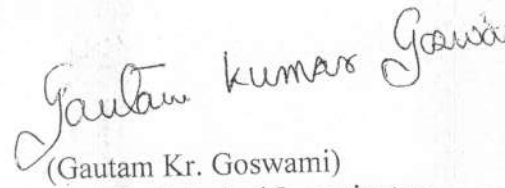 Gautam Kumar Goswa
(Gautam Kr. Goswami)